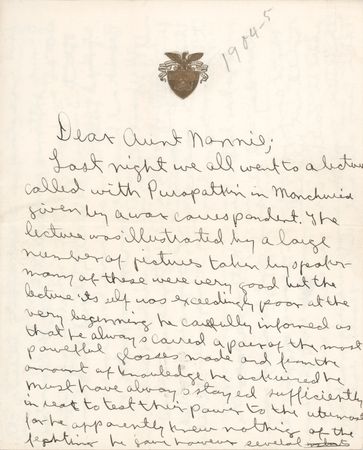 1904-5
Dear Aunt Nannie;
Last night we all went to a lecture
called with Kuropatkin in Manchuria
given by a war correspondent. The
lecture was illustrated by a large
number of pictures taken by speaker
many of these were very good but the
lecture its self was exceedingly poor at the
very beginning he carefully informed us
that he always carried a pair of the most
powerful glasses made and from the
amount of knowledge he acquired he
must have always stayed sufficiently
in rear to test their power to the utermost
for he apparently knew nothing of the
fighting he gave however several